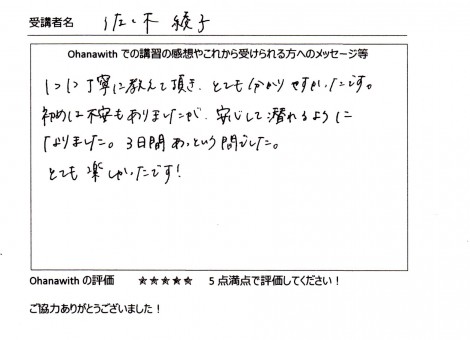 受講者名 佐々木 綾子
Ohanawith での講習の感想やこれから受けられる方へのメッセージ等
1つ1つ丁寧に教えて頂き、とても分かりやすかったです。
初めは不安もありましたが、安心して潜れるように
なりました。3日間あっという間でした。
とても楽しかったです!
Ohanawith の評価 ★★★★★ 5点満点で評価してください!
ご協力ありがとうございました!